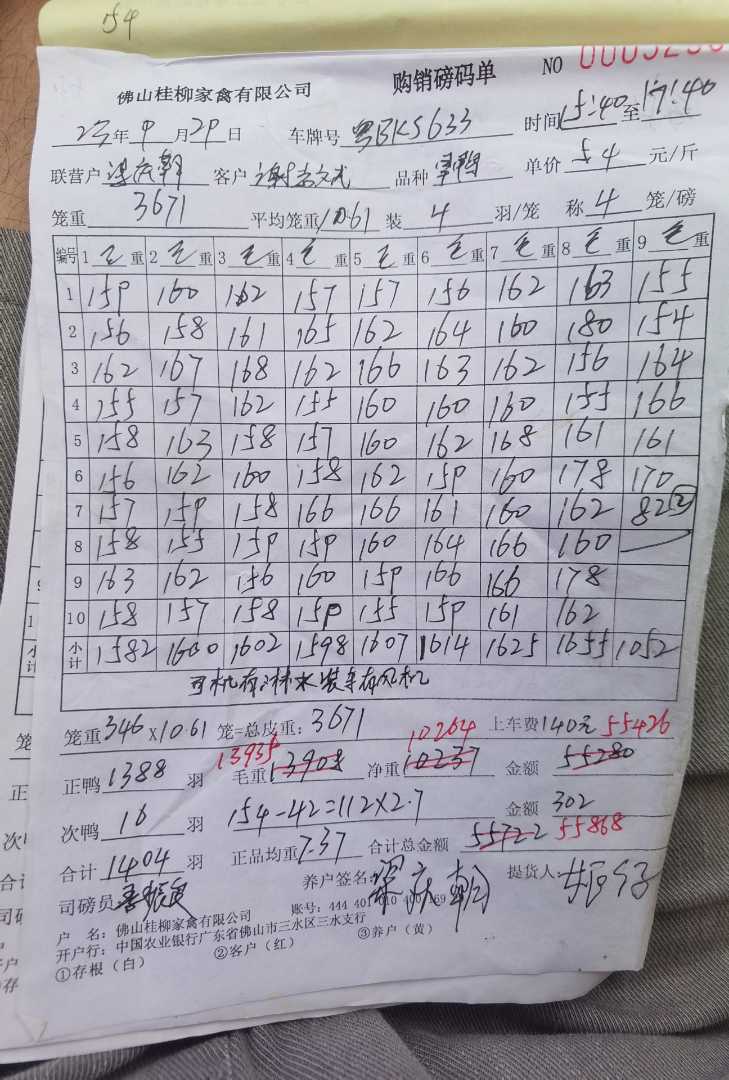 54
购销磅码单 NO
佛山桂柳家禽有限公司
年 9 月 29 日 车牌号 粤BKS633 时间 15:40 至 17:40
联营户 客户 品种 单价 54 元/斤
笼重 3671 平均笼重 10.61 装 4 羽/笼 称 4 笼/磅
编号 1 毛 重 2 毛 重 3 毛 重 4 毛 重 5 毛 重 6 毛 重 7 毛 重 8 毛 重 9 毛 重
1 159 160 162 157 157 156 162 163 155
2 156 158 161 165 162 164 160 180 154
3 162 167 168 162 166 163 162 156 164
4 155 157 162 155 160 160 160 155 166
5 158 163 158 157 160 162 168 161 161
6 156 162 160 158 162 159 160 178 170
7 157 159 158 166 166 161 160 162 82②
8 158 155 159 159 160 164 166 160
9 163 162 156 160 159 166 166 178
10 158 157 158 159 155 159 161 162
小计 1582 1600 1602 1598 1607 1614 1625 1655 1052
司机有淋水装车有风机
笼重 346 X10.61 笼=总皮重: 3671 10264 上车费 140元 55426
正鸭 1388 羽 毛重 13935 13908 净重 10237 金额 55280
次鸭 16 羽 154-42=112X2.7 金额 302
合计 1404 羽 正品均重 7.37 合计总金额 55722 55868
司磅员 养户签名: 梁庆朝 提货人:
户 名: 佛山桂柳家禽有限公司 账号: 444 401
开户行: 中国农业银行广东省佛山市三水区三水支行
①存根（白） ②客户（红） ③养户（黄）